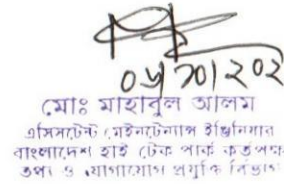 ০৬/১০/২০২
মোঃ মাহাবুল আলম
এসিসটেন্ট মেইনটেন্যান্স ইঞ্জিনিয়ার
বাংলাদেশ হাই টেক পার্ক কর্তৃপক্ষ
তথ্য ও যোগাযোগ প্রযুক্তি বিভাগ